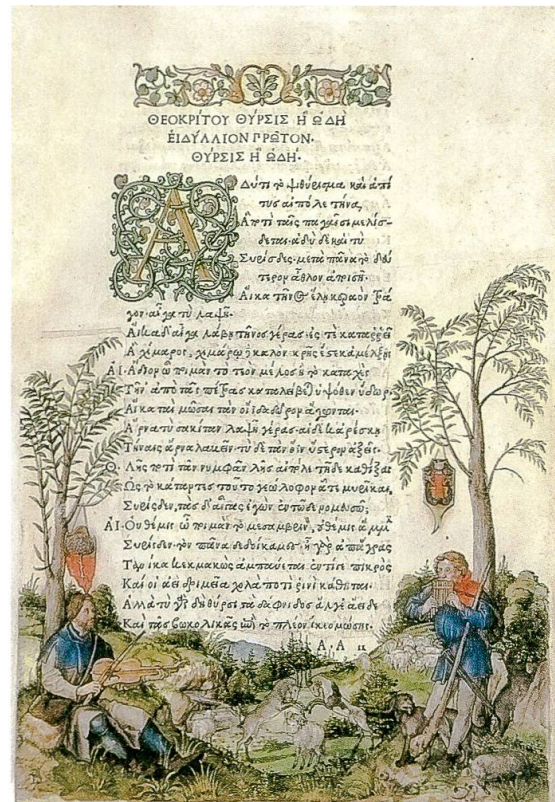 ΘΕΟΚΡΙΤΟΥ ΘΥΡΣΙΣ Ἢ ᾨΔΗ
ΕΙΔΥΛΛΙΟΝ ΠΡΩΤΟΝ·
ΘΥΡΣΙΣ Ἢ ᾨΔΗ·
Α Δύ τι τὸ ψιθύρισμα καὶ ἁ πί
τυς αἰπόλε τήνα,
Ἃ ποτὶ ταῖς παγαῖσι μελίσ-
δεται· ἁδὺ δὲ καὶ τὺ
Συρίσδες· μετὰ πᾶνα τὸ δεύ
τερον ἆθλον ἀποισῇ·
Αἴκα τῆνος ἕλῃ κεραὸν τρά
γον· αἶγα τὺ λαψῇ·
Αἴκα δ' αἶγα λάβῃ τῆνος γέρας· ἐς τὲ καταρρεῖ
Ἁ χίμαρος, χιμάρω δὲ καλὸν κρῆς ἔστε κ' ἀμέλξῃς
ΑΙ· Ἅδιον ὦ ποιμὰν τὸ τεὸν μέλος ἢ τὸ καταχὲς
Τῆν' ἀπὸ τᾶς πέτρας καταλείβεται ὑψόθεν ὕδωρ·
Αἴκα ταὶ μῶσαι τὰν οἴιδα δῶρον ἄγωνται·
Ἄρνα τὺ σακίταν λαψῇ γέρας· αἰ δέ κ' ἀρέσκῃ
Τήναις ἄρνα λαβεῖν· τὺ δὲ τὰν ὄιν ὕστερον ἀξεῖς·
Θ· Λῇς ποτὶ τᾶν νυμφᾶν λῇς αἰπόλε τῇδε καθίξας
Ὡς τὸ κάταντες τοῦτο γεώλοφον ᾇτε μυρῖκαι,
Συρίσδεν, τὰς δ' αἶγας ἐγὼν ἐν τῷδε νομευσῶ;
ΑΙ· Οὐ θέμις ὦ ποιμὰν τὸ μεσαμβρινὸν, οὐ θέμις ἄμμιν
Συρίσδεν· τὸν πᾶνα δεδοίκαμες· ἦ γὰρ ἀπ' ἄγρας
Τανίκα κεκμακὼς ἀμπαύεται· ἐντί γε πικρὸς
Καὶ οἱ ἀεὶ δριμεῖα χολὰ ποτὶ ῥινὶ κάθηται·
Ἀλλὰ τὺ γὰρ δὴ θύρσι τὰ δάφνιδος ἄλγε' ἄειδες
Καὶ τᾶς βωκολικᾶς ἐπὶ τὸ πλέον ἵκεο μώσης·
Α·Α